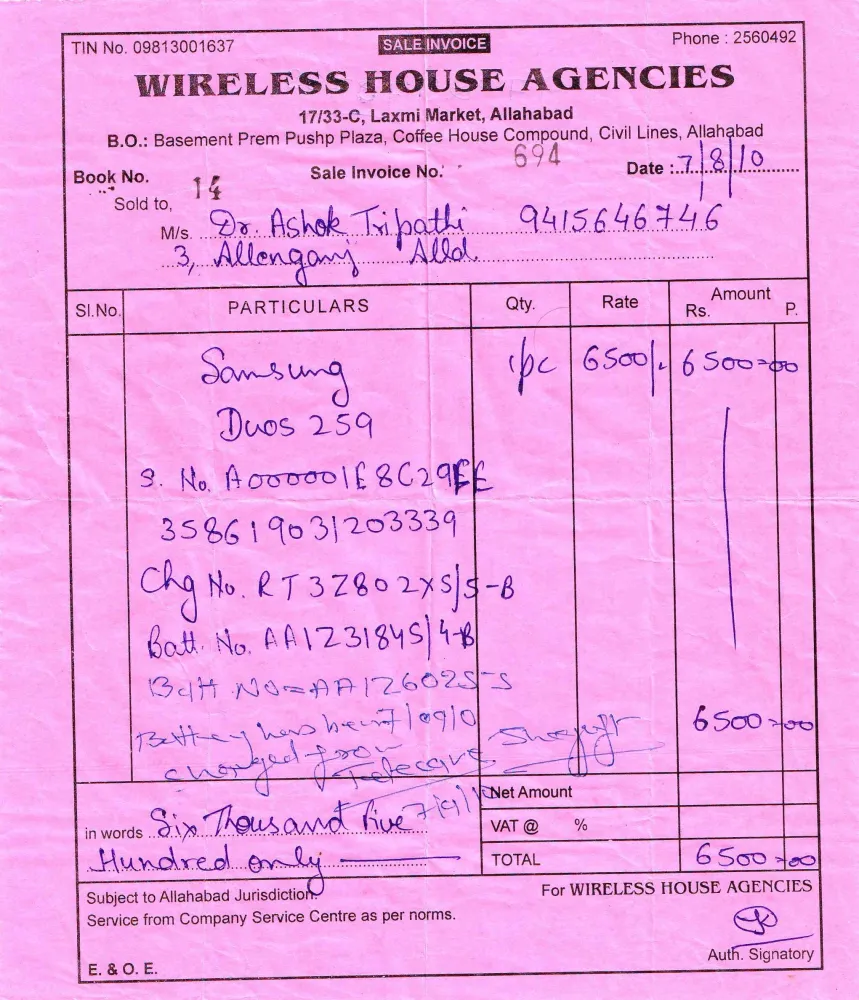 TIN No. 09813001637 SALE INVOICE Phone : 2560492
WIRELESS HOUSE AGENCIES
17/33-C, Laxmi Market, Allahabad
B.O.: Basement Prem Pushp Plaza, Coffee House Compound, Civil Lines, Allahabad
Book No. 14 Sale Invoice No. 694 Date : 7/8/10
Sold to,
M/s. Dr. Ashok Tripathi 9415646746
3, Allenganj Alld.
Sl.No. PARTICULARS Qty. Rate Amount
Rs. P.
Samsung 1pc 6500/- 6500=00
Duos 259
S. No. A000001E8C29EE
358619031203339
Chg No. RT3Z802XS/5-B
Batt. No. AA1Z3184S/4-B
Batt No=AA1Z602S-S
Battery has been 7/09/10 6500=00
changed from Telecare
Net Amount
in words Six Thousand Five 7/9/10
VAT @ %
Hundred only
TOTAL 6500=00
Subject to Allahabad Jurisdiction. For WIRELESS HOUSE AGENCIES
Service from Company Service Centre as per norms.
Auth. Signatory
E. & O. E.